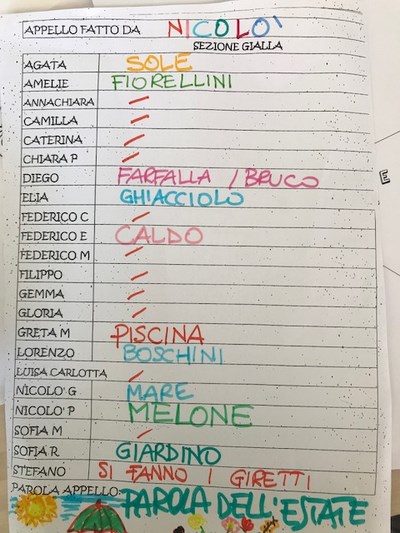 APPELLO FATTO DA NICOLO'
SEZIONE GIALLA
AGATA SOLE
AMELIE FIORELLINI
ANNACHIARA /
CAMILLA /
CATERINA /
CHIARA P /
DIEGO FARFALLA / BRUCO
ELIA GHIACCIOLO
FEDERICO C /
FEDERICO E CALDO
FEDERICO M /
FILIPPO /
GEMMA /
GLORIA /
GRETA M PISCINA
LORENZO BOSCHINI
LUISA CARLOTTA /
NICOLO' G MARE
NICOLO' P MELONE
SOFIA M /
SOFIA R GIARDINO
STEFANO SI FANNO I GIRETTI
PAROLA APPELLO: PAROLA DELL'ESTATE
E